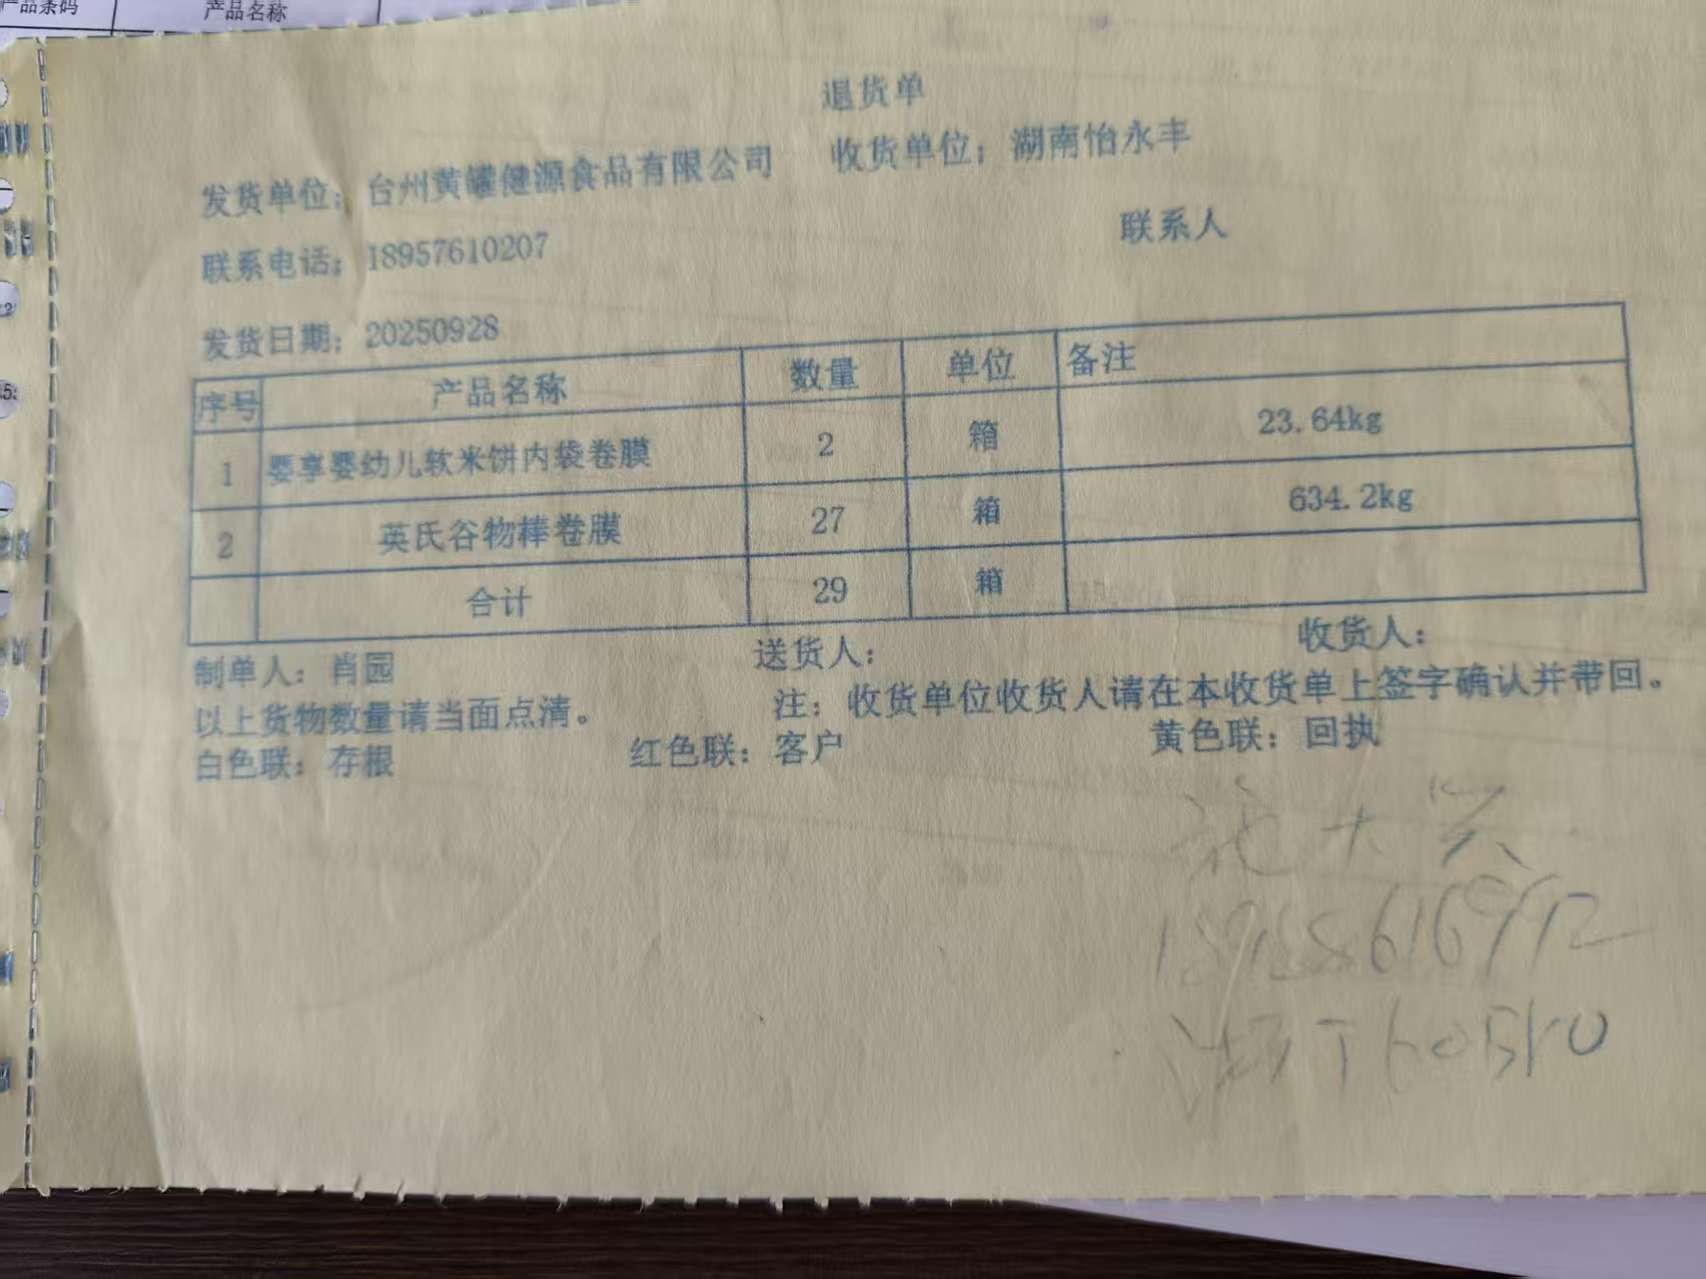 产品条码 产品名称
退货单
发货单位：台州黄罐健源食品有限公司 收货单位：湖南怡永丰
联系电话：18957610207 联系人
发货日期：20250928
序号 产品名称 数量 单位 备注
1 婴享婴幼儿软米饼内袋卷膜 2 箱 23.64kg
2 英氏谷物棒卷膜 27 箱 634.2kg
合计 29 箱
制单人：肖园 送货人： 收货人：
以上货物数量请当面点清。 注：收货单位收货人请在本收货单上签字确认并带回。
白色联：存根 红色联：客户 黄色联：回执